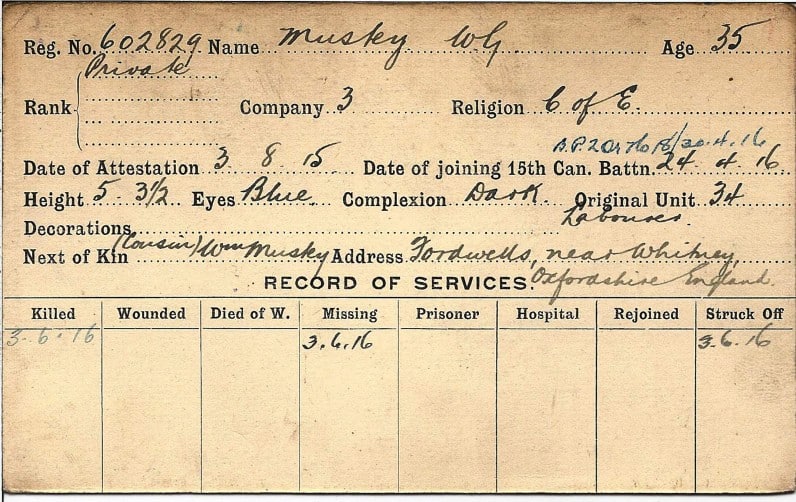 Reg. No. 602829 Name Musky W G. Age 35
Private
Rank Company 3 Religion C of E.
18/30.4.16
Date of Attestation 3 8 15 Date of joining 15th Can. Battn. 24 4 16
Height 5 3 1/2 Eyes Blue Complexion Dark Original Unit 34
Decorations Labourer
Next of Kin (Cousin) Wm Musky Address Fordwells, near Whitney,
Oxfordshire England.
RECORD OF SERVICES.
Killed Wounded Died of W. Missing Prisoner Hospital Rejoined Struck Off
3.6.16 3.6.16 3.6.16